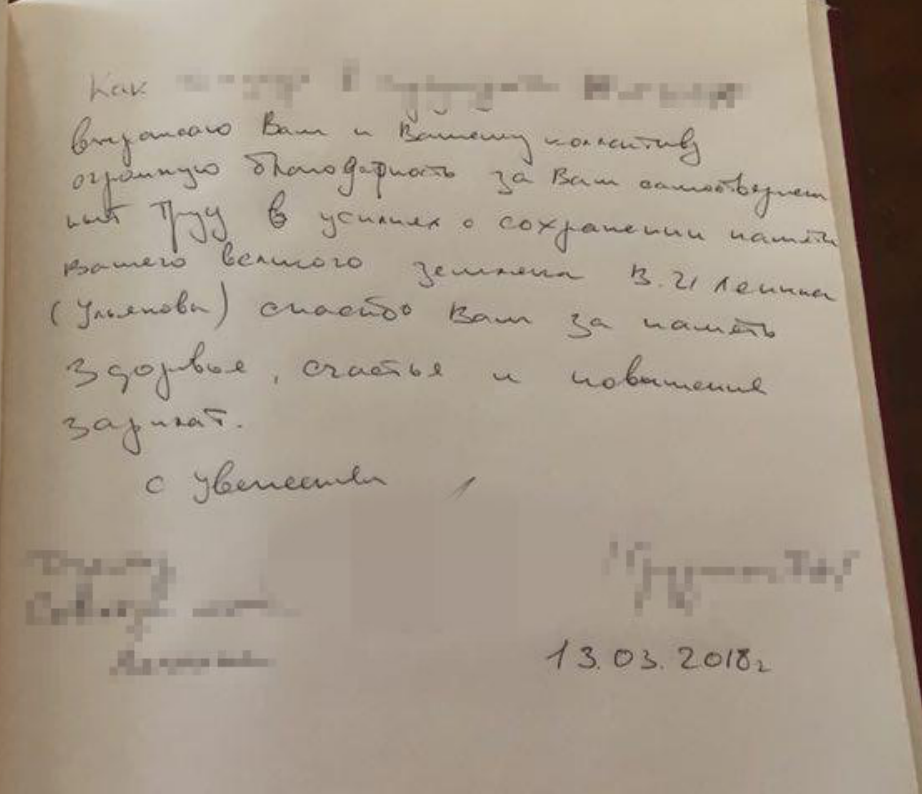 Как
выражаю Вам и Вашему коллективу
огромную благодарность за Ваш самоотвержен
ный труд в усилиях о сохранении памяти
вашего великого земляка В.И Ленина
(Ульянова) спасибо Вам за память
Здоровье, счастье и повышения
зарплат.
с уважением
13.03.2018г